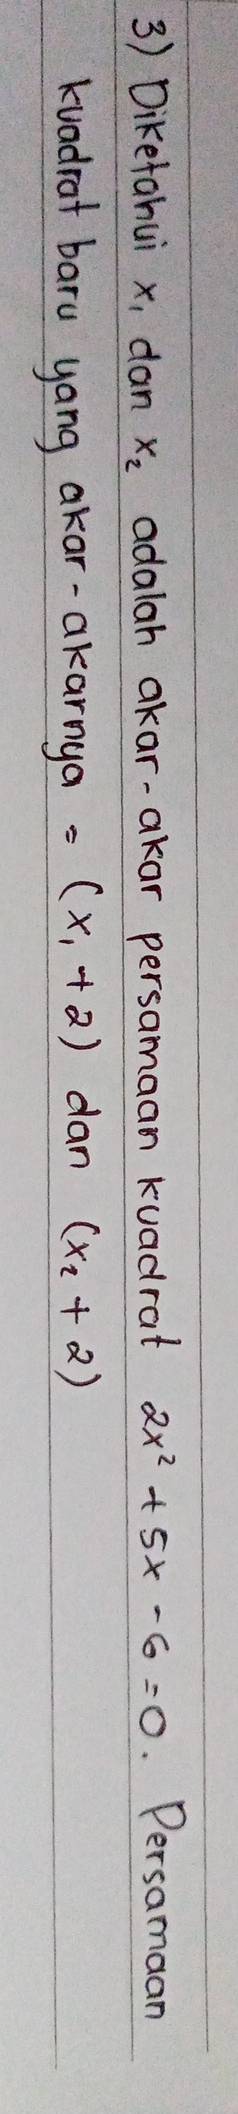 3) Diketahui x₁ dan x₂ adalah akar-akar persamaan kuadrat 2x² + 5x - 6 = 0. Persamaan
kuadrat baru yang akar-akarnya = (x₁ + 2) dan (x₂ + 2)